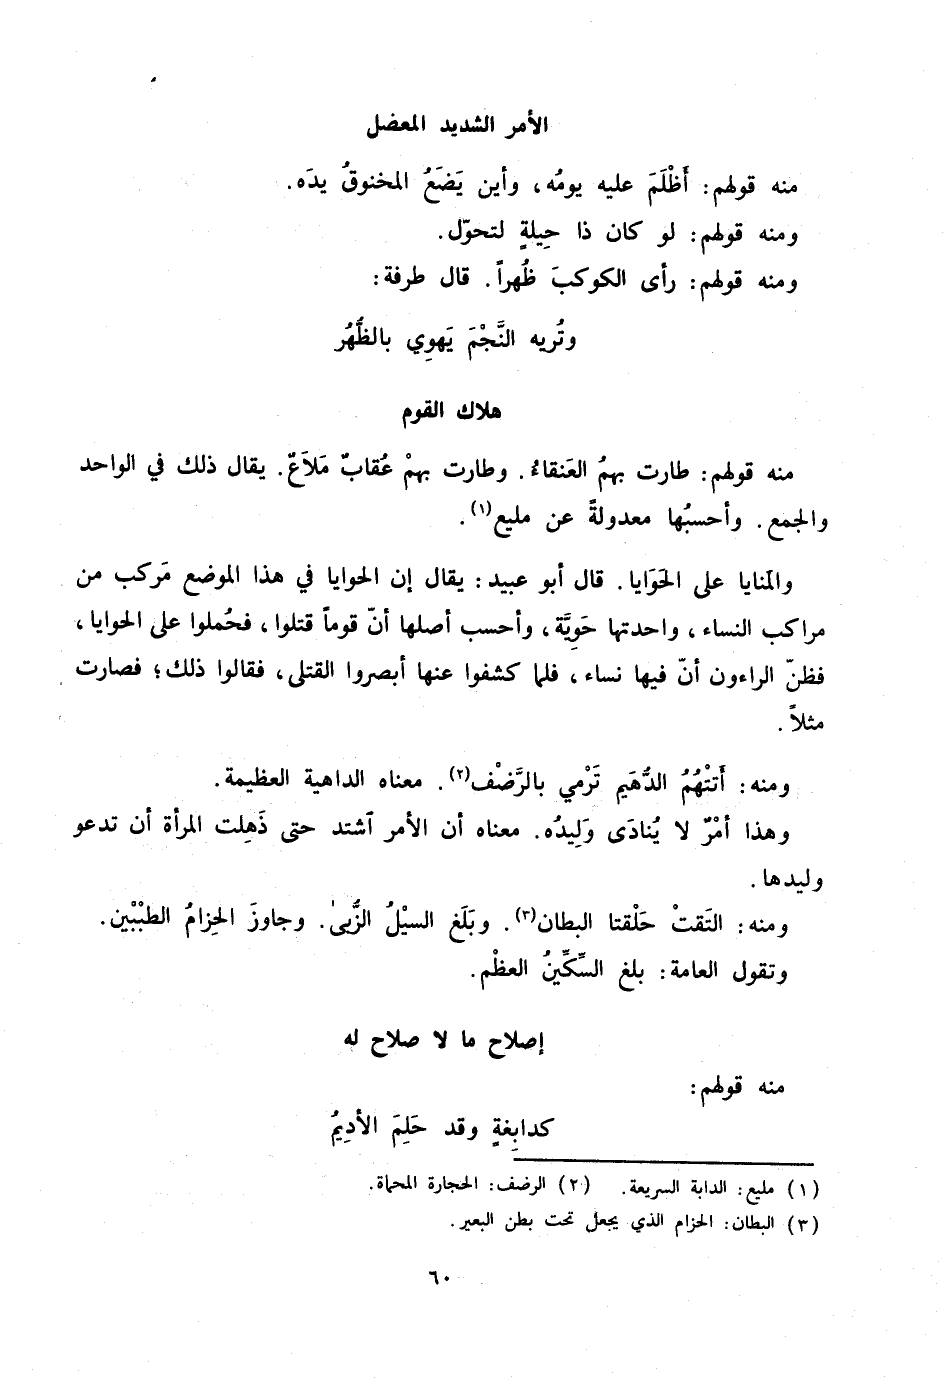 الأمر الشديد المعضل
منه قولهم: أَظْلَمَ عليه يومُه، وأين يَضَعُ المخنوقُ يدَه.
ومنه قولهم: لو كان ذا حِيلةٍ لتحوّل.
ومنه قولهم: رأى الكوكبَ ظُهراً. قال طرفة:
وتُريه النَّجْمَ يَهوِي بالظُّهُر
هلاك القوم
منه قولهم: طارت بهمُ العَنقاءُ. وطارت بهمْ عُقابٌ مَلاَعٌ. يقال ذلك في الواحد
والجمع. وأحسبُها معدولةً عن مليع(١).
والمَنايا على الحَوَايا. قال أبو عبيد: يقال إن الحوايا في هذا الموضع مَركب من
مراكب النساء، واحدتها حَوِيَّة، وأحسب أصلها أنّ قوماً قتلوا، فحُملوا على الحوايا،
فظنّ الراءون أنّ فيها نساء، فلما كشفوا عنها أبصروا القتلى، فقالوا ذلك؛ فصارت
مثلاً.
ومنه: أَتتْهُمُ الدُّهَيم تَرْمي بالرَّضْف(٢). معناه الداهية العظيمة.
وهذا أمْرٌ لا يُنادَى وَلِيدُه. معناه أن الأمر آشتد حتى ذَهِلت المرأة أن تدعو
وليدها.
ومنه: التَقتْ حَلْقتا البطان(٣). وبَلَغ السيْلُ الزُّبىٰ. وجاوزَ الحِزامُ الطبْبْين.
وتقول العامة: بلغ السِّكِّينُ العظْم.
إصلاح ما لا صلاح له
منه قولهم:
كدابِغةٍ وقد حَلِمَ الأدِيمُ
(١) مليع: الدابة السريعة. (٢) الرضف: الحجارة المحماة.
(٣) البطان: الحزام الذي يجعل تحت بطن البعير.
٦٠